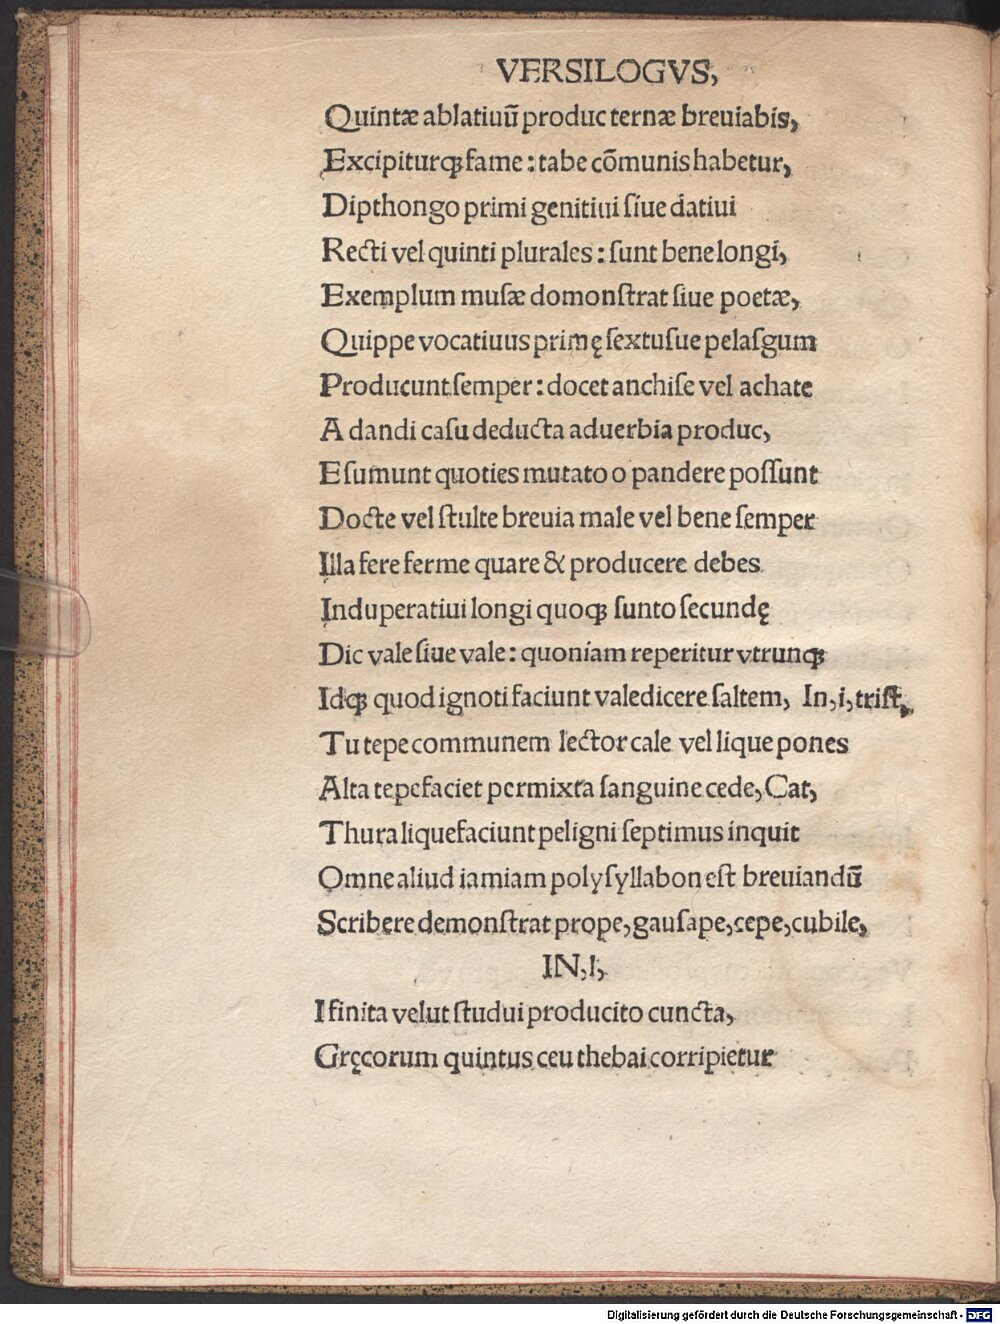 VERSILOGVS,
Quintæ ablatiuū produc ternæ breuiabis,
Excipiturꝙ fame : tabe cōmunis habetur,
Dipthongo primi genitiui ſiue datiui
Recti vel quinti plurales : ſunt bene longi,
Exemplum muſæ domonſtrat ſiue poetæ,
Quippe vocatiuus primę ſextuſue pelaſgum
Producunt ſemper : docet anchiſe vel achate
A dandi caſu deducta aduerbia produc,
E ſumunt quoties mutato o pandere poſſunt
Docte vel ſtulte breuia male vel bene ſemper
Illa fere ferme quare & producere debes
Induperatiui longi quoꝙ ſunto ſecundę
Dic vale ſiue vale : quoniam reperitur vtrunꝙ
Idꝙ quod ignoti faciunt valedicere ſaltem, In,i,triſt,
Tu tepe communem lector cale vel lique pones
Alta tepefaciet permixta ſanguine cede, Cat,
Thura liquefaciunt peligni ſeptimus inquit
Omne aliud iamiam polyſyllabon eſt breuiandū
Scribere demonſtrat prope, gauſape, cepe, cubile,
IN,I,
I finita velut ſtudui producito cuncta,
Gręcorum quintus ceu thebai corripietur
Digitalisierung gefördert durch die Deutsche Forschungsgemeinschaft - DFG